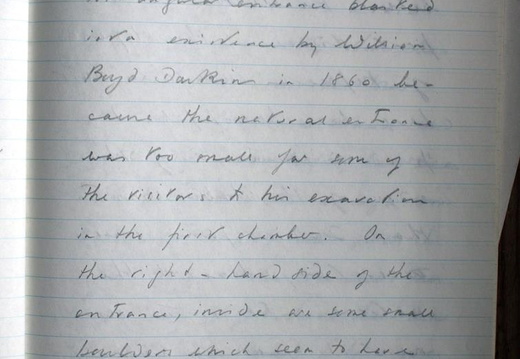 entrance blasted
into existence by William
Boyd Dawkins in 1860 be-
cause the natural entrance
was too small for some of
the visitors to his excavation
in the first chamber. On
the right-hand side of the
entrance, inside are some small
boulders which seem to have